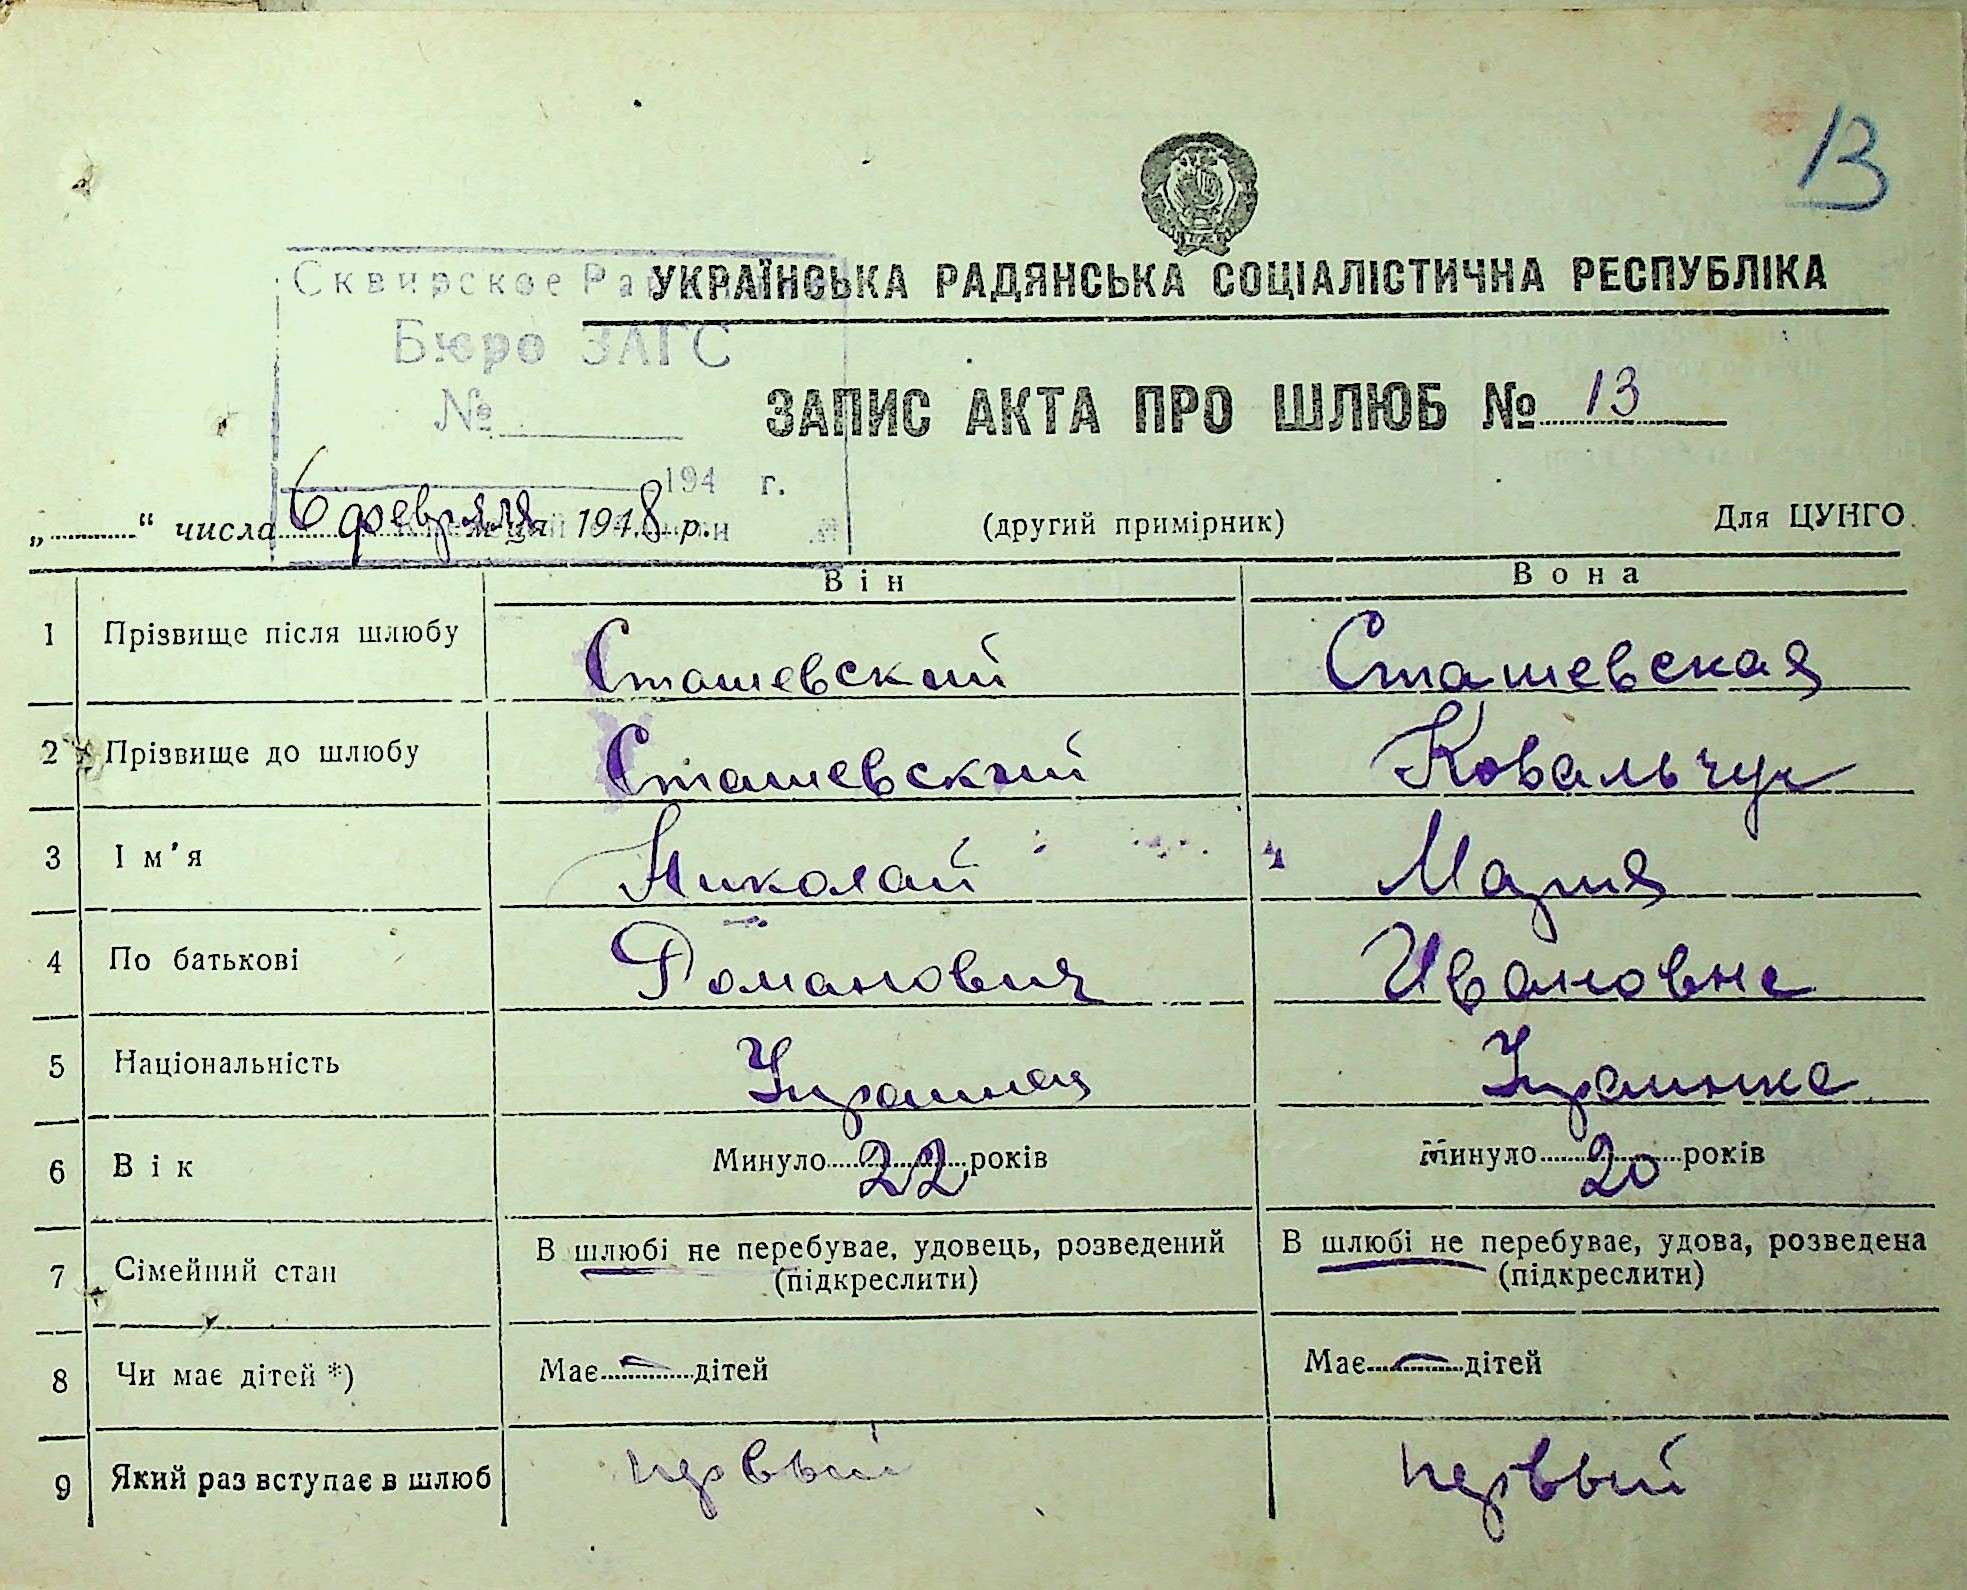 13
Сквирское Рай
УКРАЇНСЬКА РАДЯНСЬКА СОЦІАЛІСТИЧНА РЕСПУБЛІКА
Бюро ЗАГС
№
ЗАПИС АКТА ПРО ШЛЮБ № 13
194 г.
„ “ числа 6 февраля м-ця 1948 р.
(другий примірник)
Для ЦУНГО
Він Вона
1 Прізвище після шлюбу Сташевский Сташевская
2 Прізвище до шлюбу Сташевский Ковальчук
3 Ім'я Николай Мария
4 По батькові Романович Ивановна
5 Національність Украинец Украинка
6 Вік Минуло 22 років Минуло 20 років
7 Сімейний стан В шлюбі не перебуває, удовець, розведений В шлюбі не перебуває, удова, розведена
(підкреслити) (підкреслити)
8 Чи має дітей *) Має — дітей Має — дітей
9 Який раз вступає в шлюб первый первый